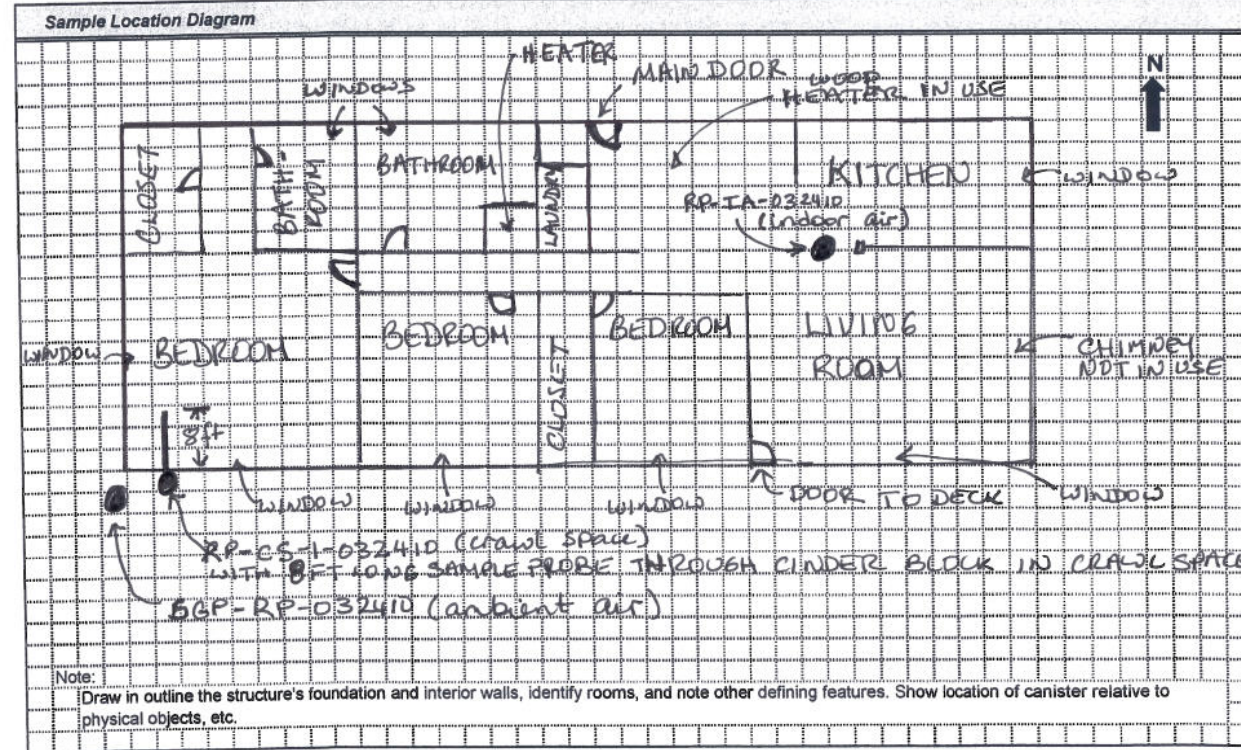 Sample Location Diagram
HEATER
MAIN DOOR
WOOD
HEATER IN USE
N
WINDOWS
CLOSET
BATH-
ROOM
BATHROOM
LAUNDRY
KITCHEN
WINDOW
RP-IA-032410
(indoor air)
BEDROOM
BEDROOM
LIVING
ROOM
WINDOW
BEDROOM
CLOSET
CHIMNEY
NOT IN USE
8ft
WINDOW
WINDOW
WINDOW
DOOR TO DECK
WINDOW
RP-CS-1-032410 (crawl space)
WITH 8FT LONG SAMPLE PROBE THROUGH CINDER BLOCK IN CRAWL SPACE
SGP-RP-032410 (ambient air)
Note:
Draw in outline the structure's foundation and interior walls, identify rooms, and note other defining features. Show location of canister relative to
physical objects, etc.